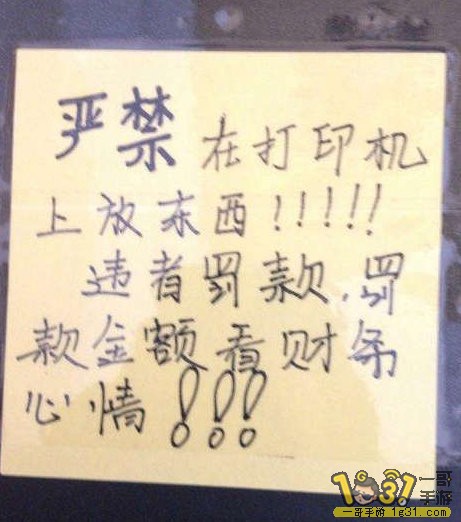 严禁在打印机
上放东西!!!!!
违者罚款,罚
款金额看财务
心情!!!
1031 一哥手游
一哥手游 1g31.com